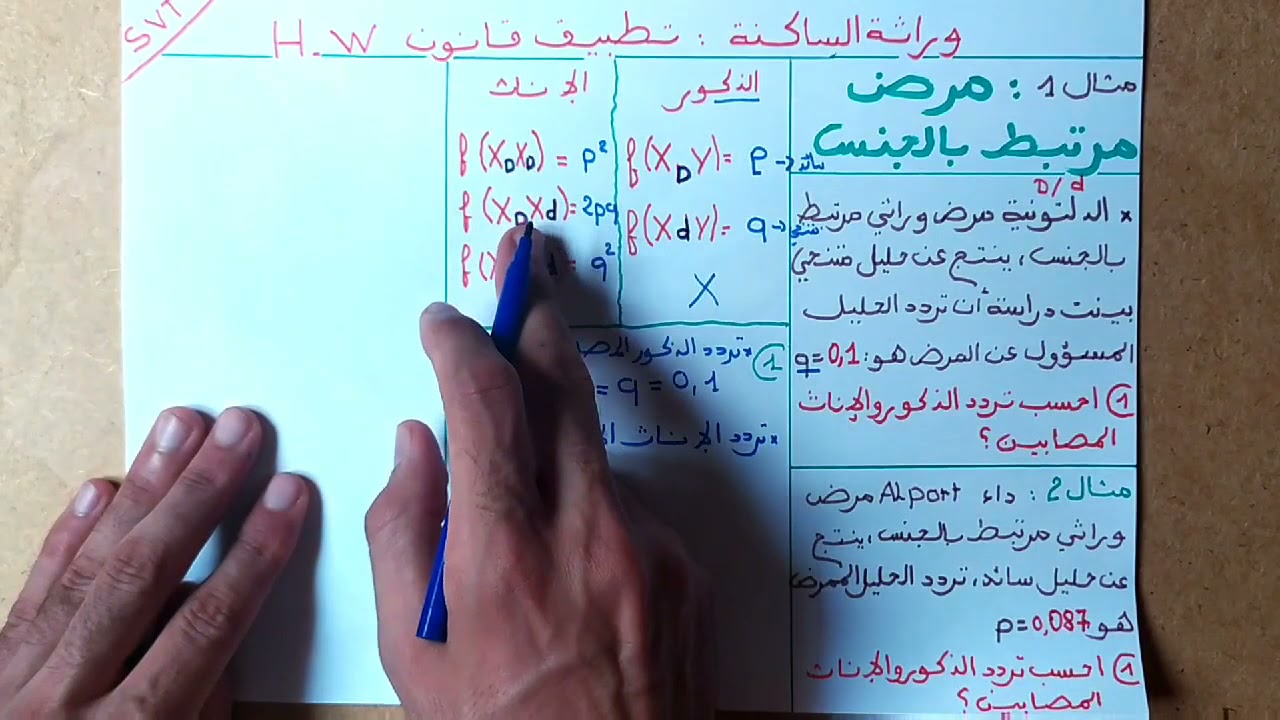 SVT
وراثة الساكنة : تطبيق قانون H.W
مثال 1 : مرض
مرتبط بالجنس
D/d
* الدلتونية مرض وراثي مرتبط
بالجنس، ينتج عن حليل متنحي
بينت دراسة أن تردد الحليل
المسؤول عن المرض هو: q=0,1
① احسب تردد الذكور والإناث
المصابين؟
مثال 2 : داء ALport مرض
وراثي مرتبط بالجنس، ينتج
عن حليل سائد، تردد الحليل الممرض
هو p=0,087
① احسب تردد الذكور والإناث
المصابين؟
الذكور
f(X_D Y)= p → سائد
f(X_d Y)= q → متنحي
X
الإناث
f(X_D X_D) = p²
f(X_D X_d)= 2pq
f(X d = q²
① * تردد الذكور
= q = 0,1
* تردد الإناث